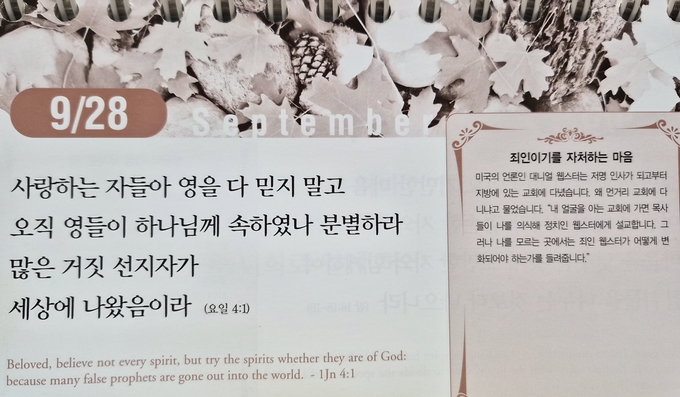 9/28
September
사랑하는 자들아 영을 다 믿지 말고
오직 영들이 하나님께 속하였나 분별하라
많은 거짓 선지자가
세상에 나왔음이라 (요일 4:1)
Beloved, believe not every spirit, but try the spirits whether they are of God:
because many false prophets are gone out into the world. - 1Jn 4:1
죄인이기를 자처하는 마음
미국의 언론인 대니얼 웹스터는 저명 인사가 되고부터
지방에 있는 교회에 다녔습니다. 왜 먼거리 교회에 다
니냐고 물었습니다. "내 얼굴을 아는 교회에 가면 목사
들이 나를 의식해 정치인 웹스터에게 설교합니다. 그
러나 나를 모르는 곳에서는 죄인 웹스터가 어떻게 변
화되어야 하는가를 들려줍니다."